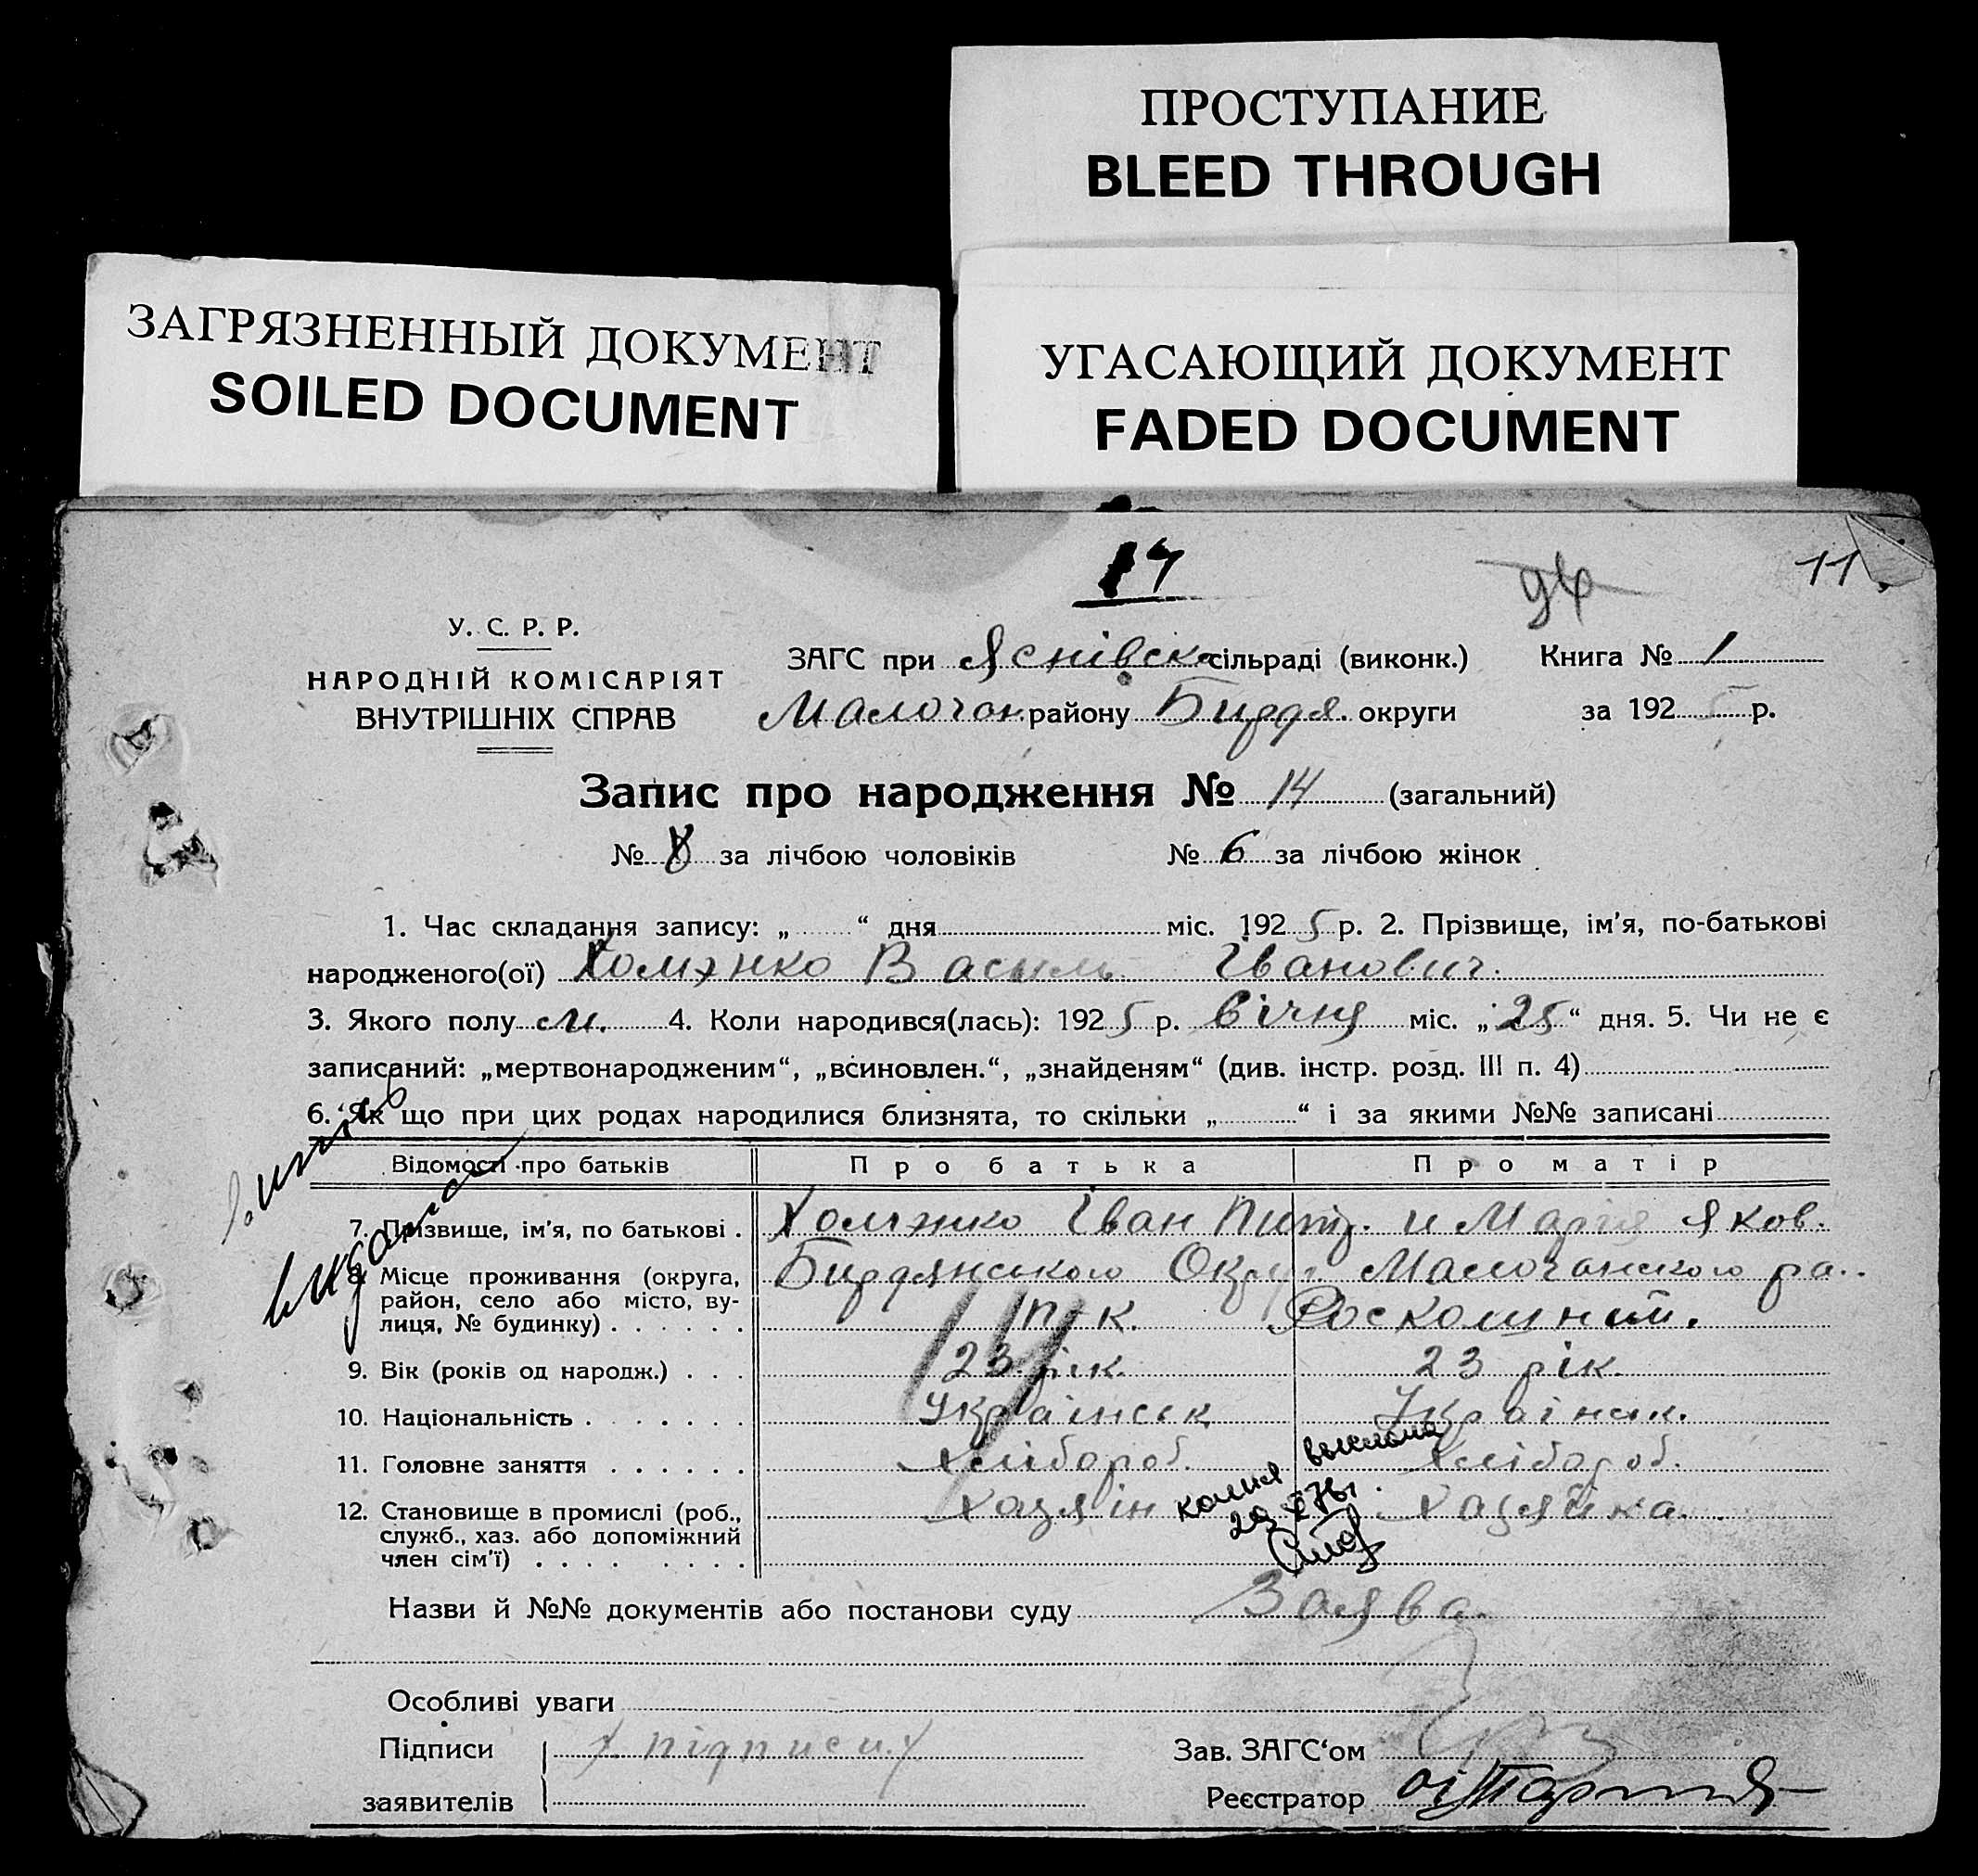 ПРОСТУПАНИЕ
BLEED THROUGH
ЗАГРЯЗНЕННЫЙ ДОКУМЕНТ
SOILED DOCUMENT
УГАСАЮЩИЙ ДОКУМЕНТ
FADED DOCUMENT
17
11
У. С. Р. Р.
НАРОДНІЙ КОМІСАРІЯТ
ВНУТРІШНІХ СПРАВ
ЗАГС при Яснівск сільраді (виконк.) Книга № 1
Малочан. району Бирдя. округи за 1925 р.
Запис про народження № 14 (загальний)
№ 8 за лічбою чоловіків № 6 за лічбою жінок
1. Час складання запису: „ “ дня міс. 1925 р. 2. Прізвище, ім'я, по-батькові
народженого(ої) Хоменко Василь Іванович.
3. Якого полу м. 4. Коли народився(лась): 1925 р. вічня міс. „25“ дня. 5. Чи не є
записаний: „мертвонародженим“, „всиновлен.“, „знайденям“ (див. інстр. розд. III п. 4)
6. Як що при цих родах народилися близнята, то скільки „ “ і за якими №№ записані
Відомості про батьків Про батька Про матір
7. Прізвище, ім'я, по батькові . Хоменко Іван Пит. и Марія Яков.
8. Місце проживання (округа, район, село або місто, вулиця, № будинку) . . . . . . Бирдянського Округ Малочанского ра..
п-к. Роскошний.
9. Вік (років од народж.) . . . 23 рік. 23 рік.
10. Національність . . . . . . . Українськ Українськ.
11. Головне заняття . . . . . . Хлібороб. Хлібороб.
12. Становище в промислі (роб., служб., хаз. або допоміжний член сім'ї) . . . . . . . . Хазяін Хазяйка.
копия выслана
Назви й №№ документів або постанови суду Заява.
Особливі уваги
Підписи підписи
заявителів
Зав. ЗАГС‘ом
Реєстратор